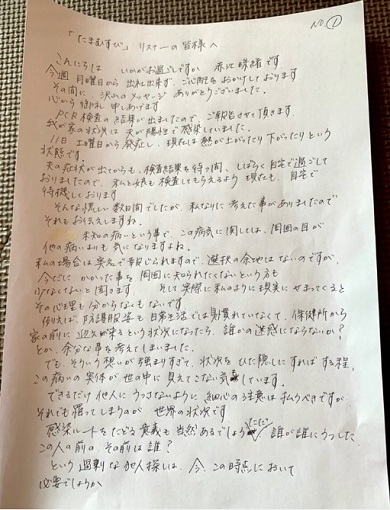 No.①
「たまむすび」リスナーの皆様へ
こんにちは いかがお過ごしですか 赤江珠緒です
今週 月曜日から お休みし ご心配をおかけしております
その間に 沢山のメッセージ ありがとうございました。
心から御礼申しあげます
PCR検査の結果が出ましたので、ご報告させて頂きます
我が家の状況は 夫が陽性で感染していました。
11日土曜日から発症し、現在は熱が上がったり下がったりという
状態です。
夫の症状が出てからも、検査結果を待つ間、しばらく自宅で過ごして
おりましたので、私と娘も検査してもらえるよう 現在も、自宅で
待機しております
そんな慌しい数日間でしたが、私なりに考えた事がありましたので
それをお伝えしますね。
未知の病という事で、この病気に関しては、周囲の目が
他の病いよりも気になりますよね。
私の場合は実名で報じられますので、選択の余地はないのですが、
今だに かかった事を周囲に知られたくないという方も
少なくないと聞きます そして実際に私のまわりに現実にせまってくると
その心理も分からなくもないです
例えば、防護服姿を日常生活では見慣れていなくて、保健所から
家の前に迎えが来るという状況になったら、誰かの迷惑にならないか?
とか、余分な事を考えてしまいました。
でも そういう想いが強まりすぎて、状況をひた隠しにすればする程、
この病いの実体が世の中に見えてこない気もしています。
できるだけ他人にうつさないように 細心の注意は払うべきですが
それでも罹ってしまうのが 世界の状況です
感染ルートをたどる意義も当然あるでしょう ただ 誰が誰にうつした
この人の前の、その前は誰?
という過剰な犯人探しは、今、この時点において
必要でしょうか